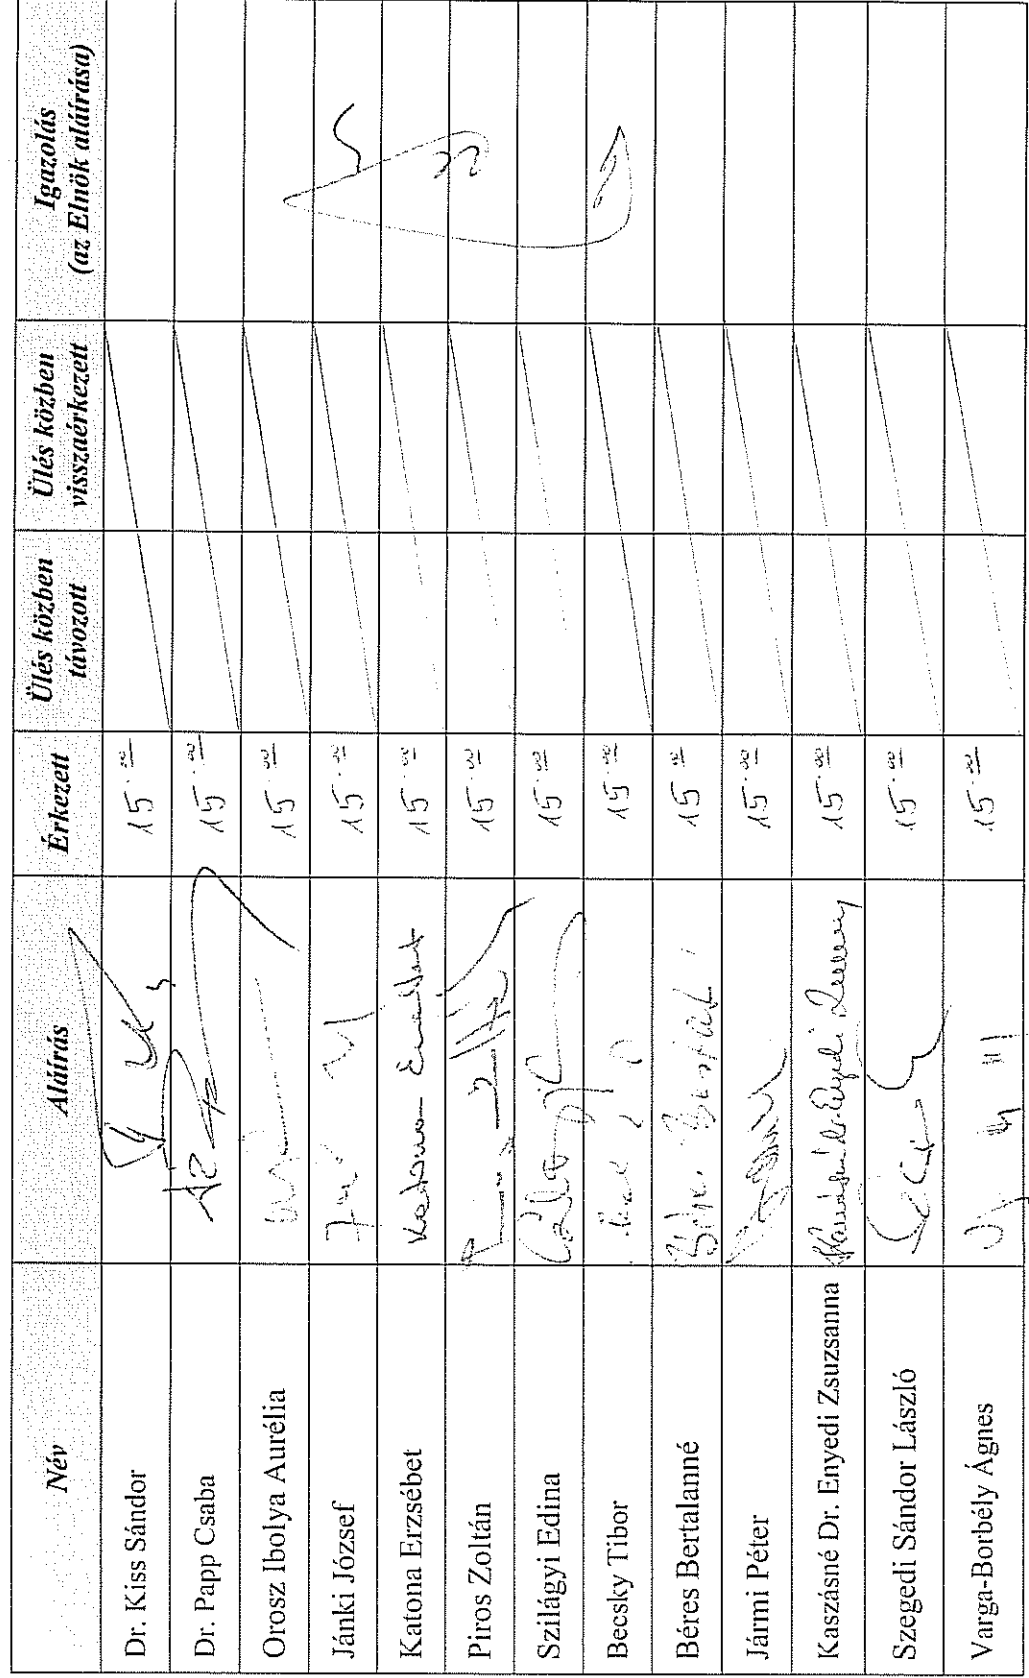 Név Aláírás Érkezett Ülés közben távozott Ülés közben visszaérkezett Igazolás (az Elnök aláírása)
Dr. Kiss Sándor 15.00
Dr. Papp Csaba 15.00
Orosz Ibolya Aurélia 15.00
Jánki József 15.00
Katona Erzsébet Katona Erzsébet 15.00
Piros Zoltán 15.00
Szilágyi Edina 15.00
Becsky Tibor 15.00
Béres Bertalanné 15.00
Jármi Péter 15.00
Kaszásné Dr. Enyedi Zsuzsanna 15.00
Szegedi Sándor László 15.00
Varga-Borbély Ágnes 15.00